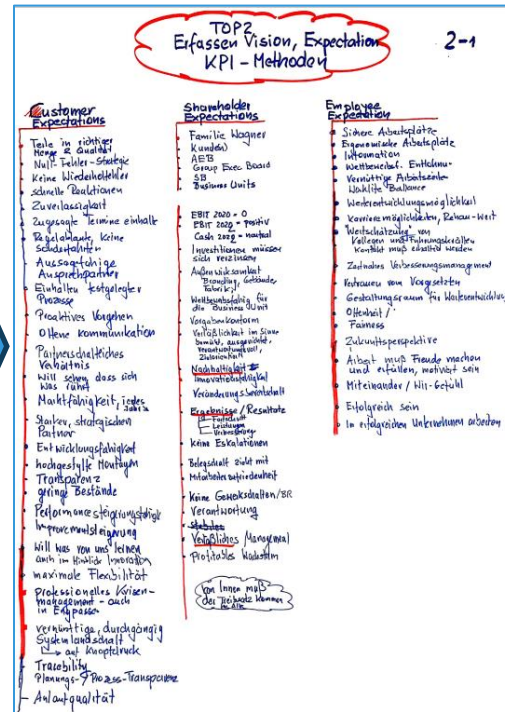 TOP2
Erfassen Vision, Expectation
KPI - Methoden
2-1
Customer
Expectations
Teile in richtiger
Menge & Qualität
Null-Fehler-Strategie
Keine Wiederholfehler
schnelle Reaktionen
Zuverlässigkeit
Zugesagte Termine einhalte
Regelabläufe, keine
Sonderfahrten
Aussagefähige
Ansprechpartner
Einhalten festgelegter
Prozesse
Proaktives Vorgehen
Offene Kommunikation
Partnerschaftliches
Verhältnis
Will sehen dass sich
was rührt
Marktfähigkeit, jedes
Jahr
Starker, strategischen
Partner
Entwicklungsfähigkeit
Transparenz
geringe Bestände
Performancesteigerungsfähigkeit
Improvementsteigerung
Will was von uns lernen
auch im Hinblick Innovation
maximale Flexibilität
professionelles Krisen-
management - auch
in Engpässen
vernünftige, durchgängig
Systemlandschaft
auf Knopfdruck
Tracebility
Planungs- & Prozess-Transparenz
Anlaufqualität
Shareholder
Expectations
Familie Wagner
Kunden
AEB
Group Exec Board
SB
Business Units
EBIT 2020 = 0
EBIT 202 = positiv
Cash 202 = neutral
Investitionen müssen
sich verzinsen
Außenwirksamkeit
Branding, Gebäude,
Fabrik,
Wettbewerbsfähig für
die Business Unit
Vorgabenkonform
Verläßlichkeit im Sinne
bemüht, ausgerichtet,
verantwortungsvoll,
Zielorientiert
Nachhaltigkeit
Innovationsfähigkeit
Veränderungsbereitschaft
Ergebnisse / Resultate
Fortschritt
Leistungen
Verbesserung
Keine Eskalationen
Belegschaft zieht mit
Mitarbeiterzufriedenheit
Keine Gewerkschaften/BR
Verantwortung
stabiles
Verläßliches Management
Profitables Wachstum
Von Innen muß
der Treibsatz kommen
Employee
Expectation
Sichere Arbeitsplätze
Ergonomische Arbeitsplätze
Information
Wettbewerbsf. Entlohnung
Vernünftige Arbeitszeiten
Worklife Ballance
Weiterentwicklungsmöglichkeit
Karrieremöglichkeiten,
Wertschätzung von
Kollegen und Führungskräften
Konflikt muß
Zeitnahes Verbesserungsmanagement
Vertrauen vom Vorgesetzten
Gestaltungsraum für Weiterentwicklung
Offenheit /
Fairness
Zukunftsperspektive
Arbeit muß Freude machen
und erfüllen, motiviert sein
Miteinander / Wir-Gefühl
Erfolgreich sein
In erfolgreichen Unternehmen arbeiten